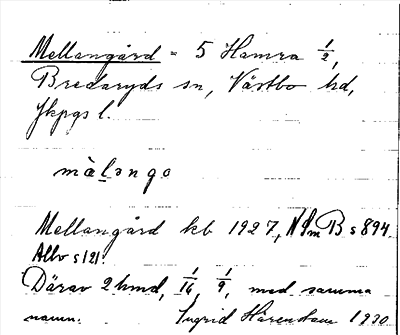 Mellangård = 5 Hamra 1/2,
Bredaryds sn, Västbo hd,
Jkpgs l.
màḷango
Mellangård kb 1927, NSmB s 894.
Allv s 121.
Därav 2 hmd, 1/16 1/9, med samma
namn. Ingrid Härenstam 1930